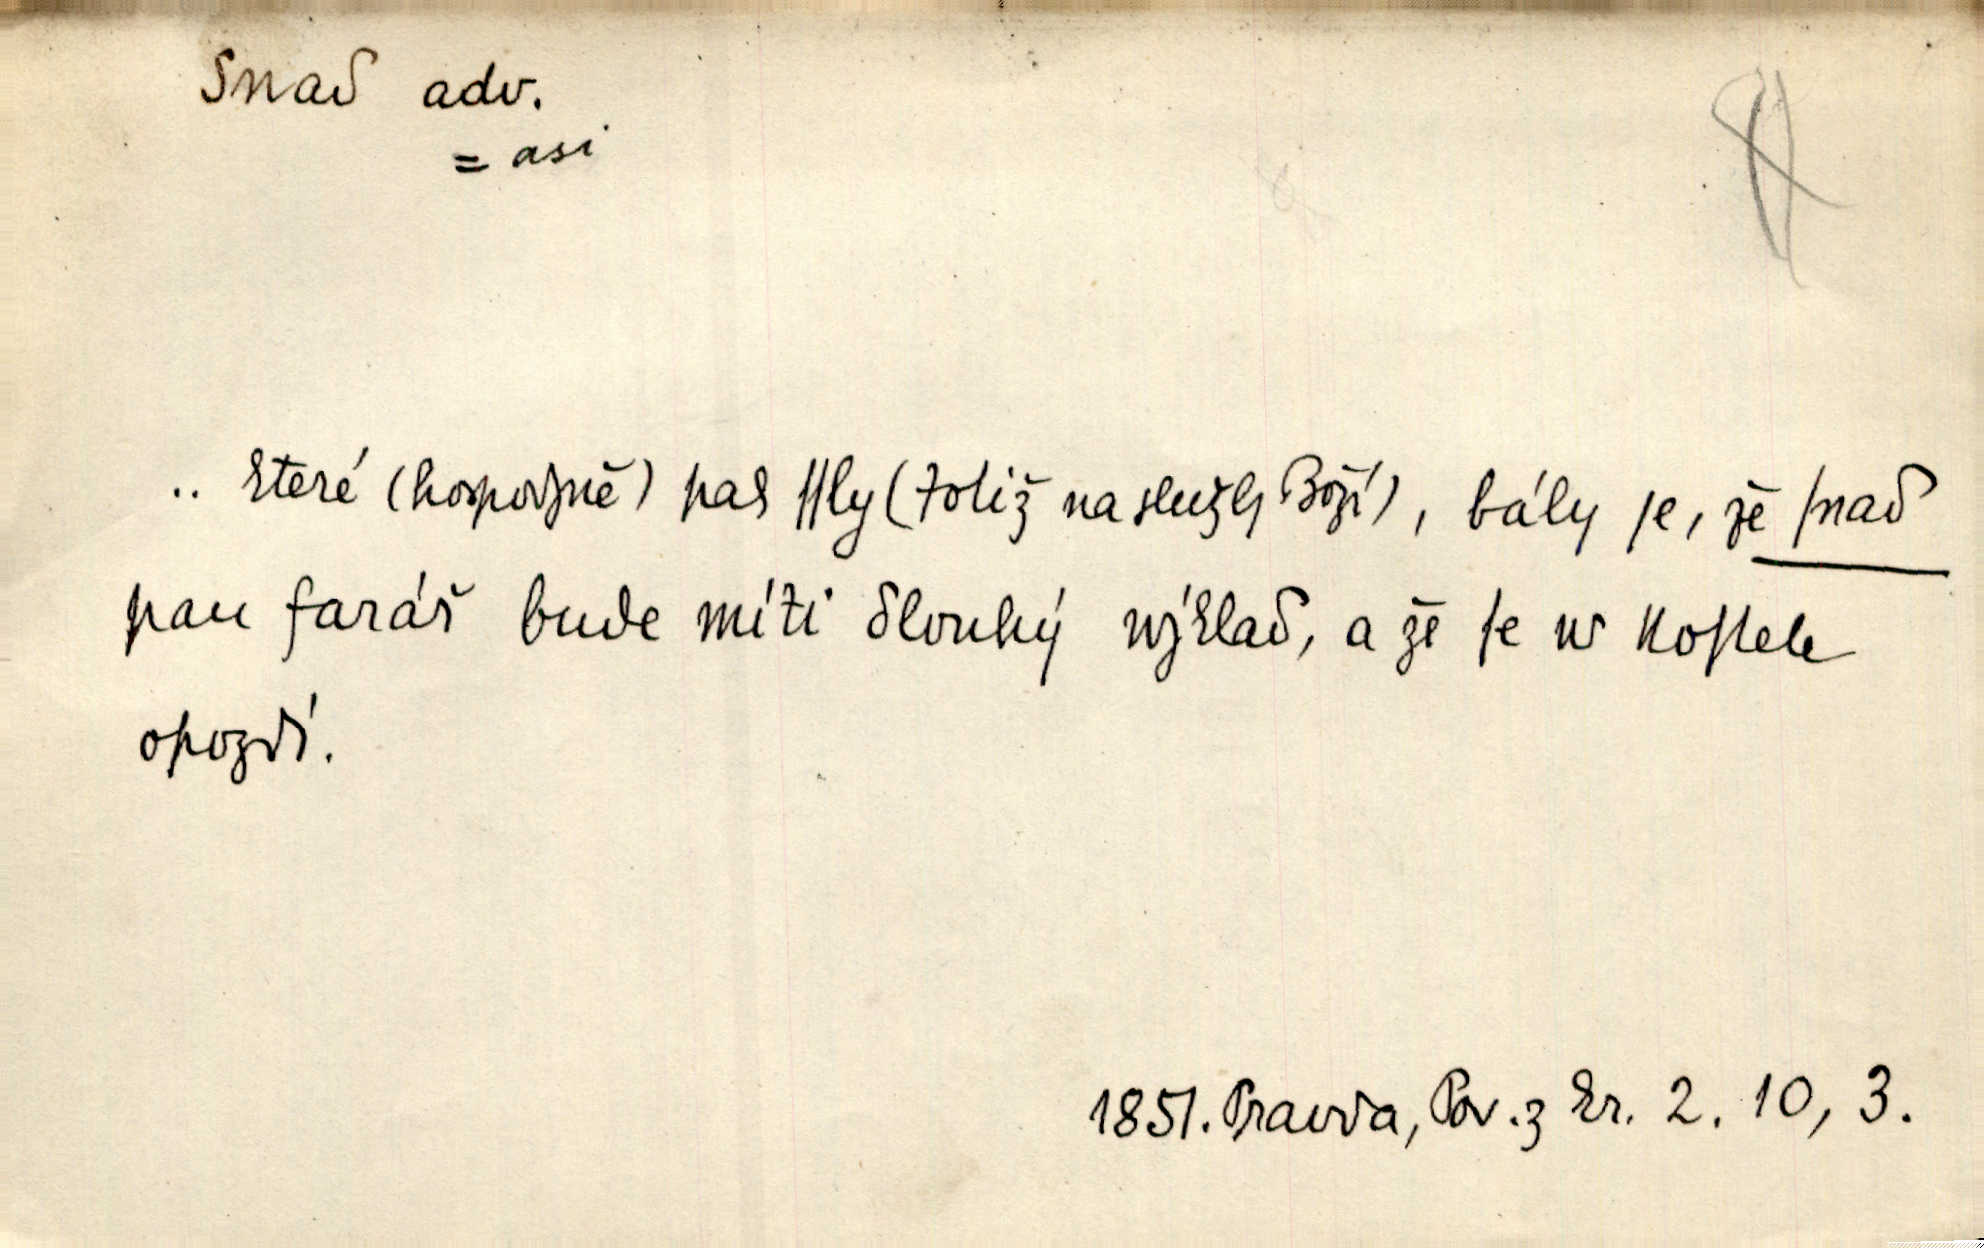 Snad adv.
= asi
.. které (hospodyně) pak ſſly (totiž na služby Boží), bály ſe, že ſnad
pan farář bude míti dlouhý wýklad, a že ſe w koſtele
opozdí.
1851. Pravda, Pov. z kr. 2. 10, 3.